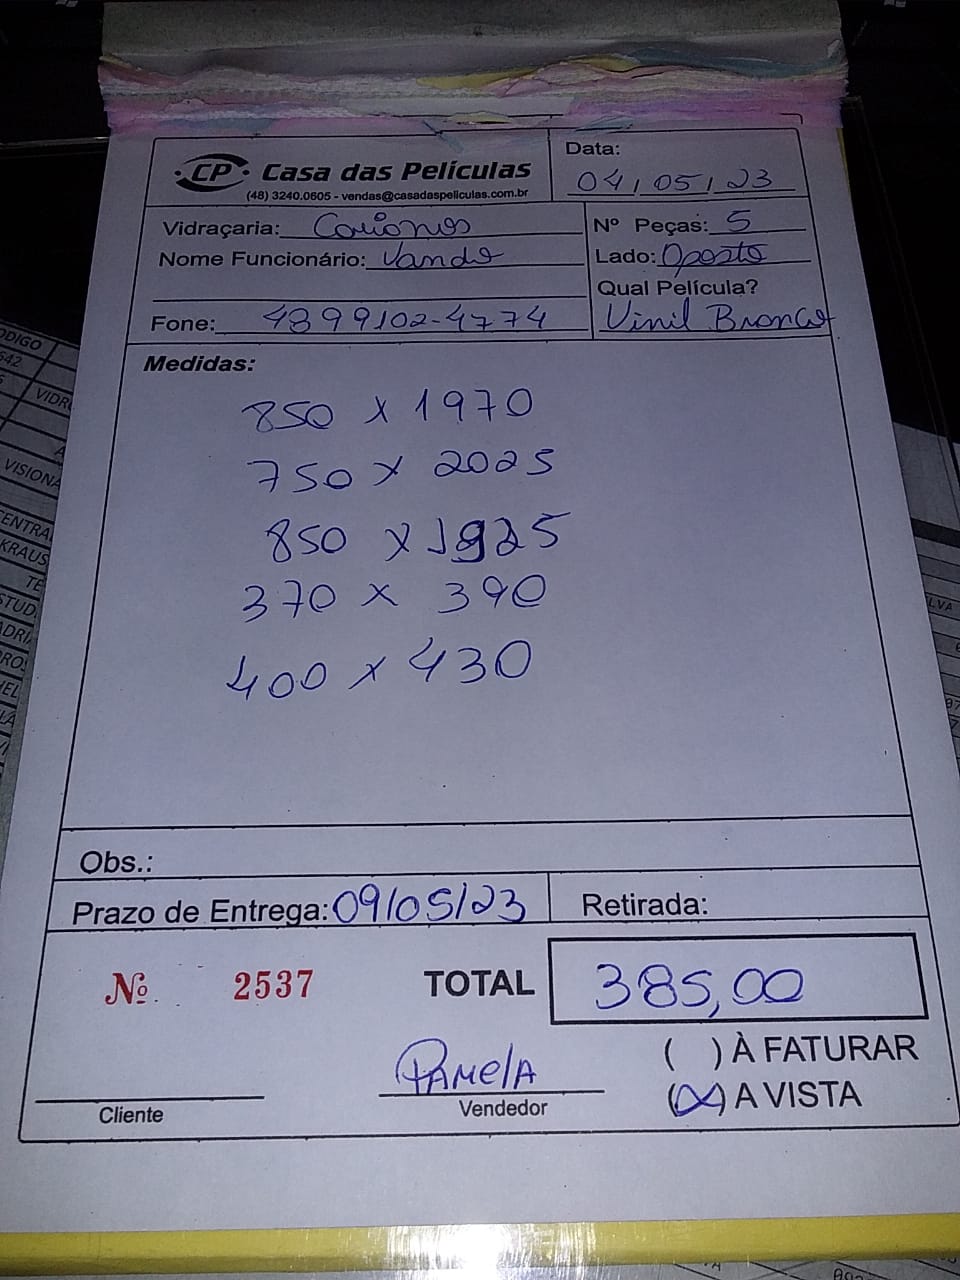 CP Casa das Películas
(48) 3240.0605 - vendas@casadaspeliculas.com.br
Data:
04/05/23
Vidraçaria: Carianos
Nome Funcionário: Vando
Fone: 4899102-4774
Nº Peças: 5
Lado: Oposto
Qual Película?
Vinil Branco
Medidas:
850 x 1970
750 x 2025
850 x 1925
370 x 390
400 x 430
Obs.:
Prazo de Entrega: 09/05/23
Retirada:
Nº 2537
TOTAL 385,00
( ) À FATURAR
(X) A VISTA
Pamela
Cliente
Vendedor
ODIGO
VIDR
VISIONA
ENTRA
KRAUS
TE
STUD
ADRI
LVA